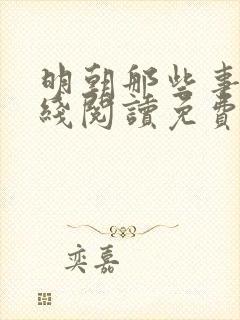 明朝那些事
綫閱讀免費
奕嘉